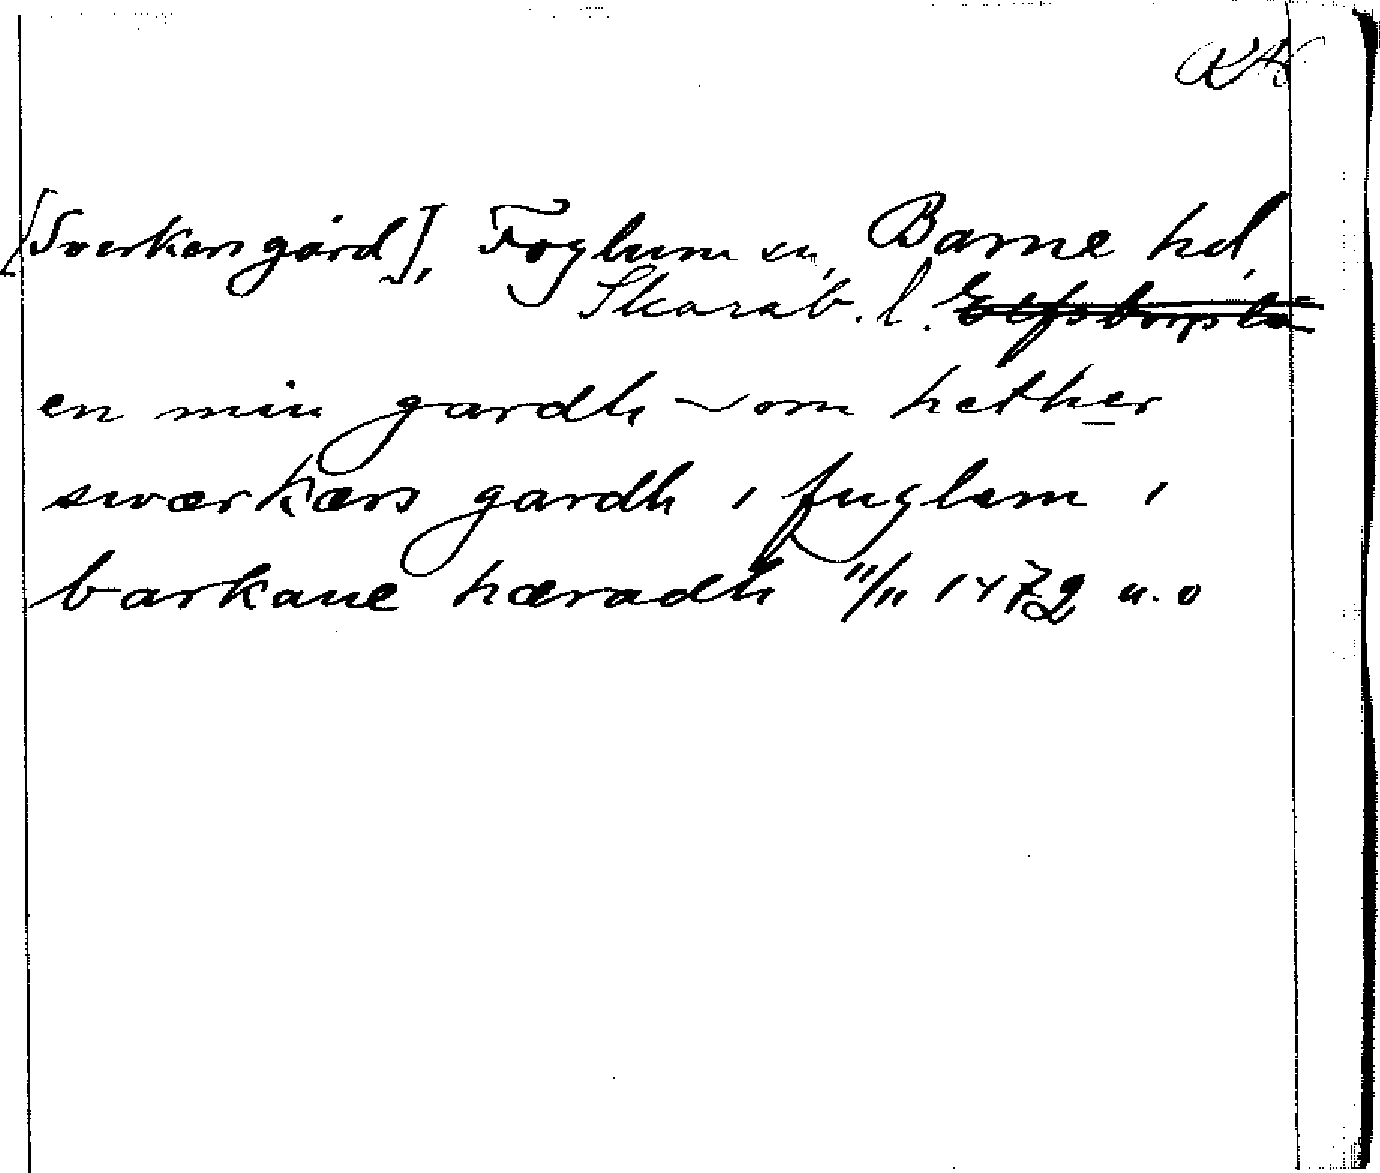 [Sverkersgård], Foglum sn, Barne hd,
Skarab. l. Elfsborgs län
en min gardh som hether
swærkærs gardh i fuglem i
barkane hæradh 11/11 1472 u. o